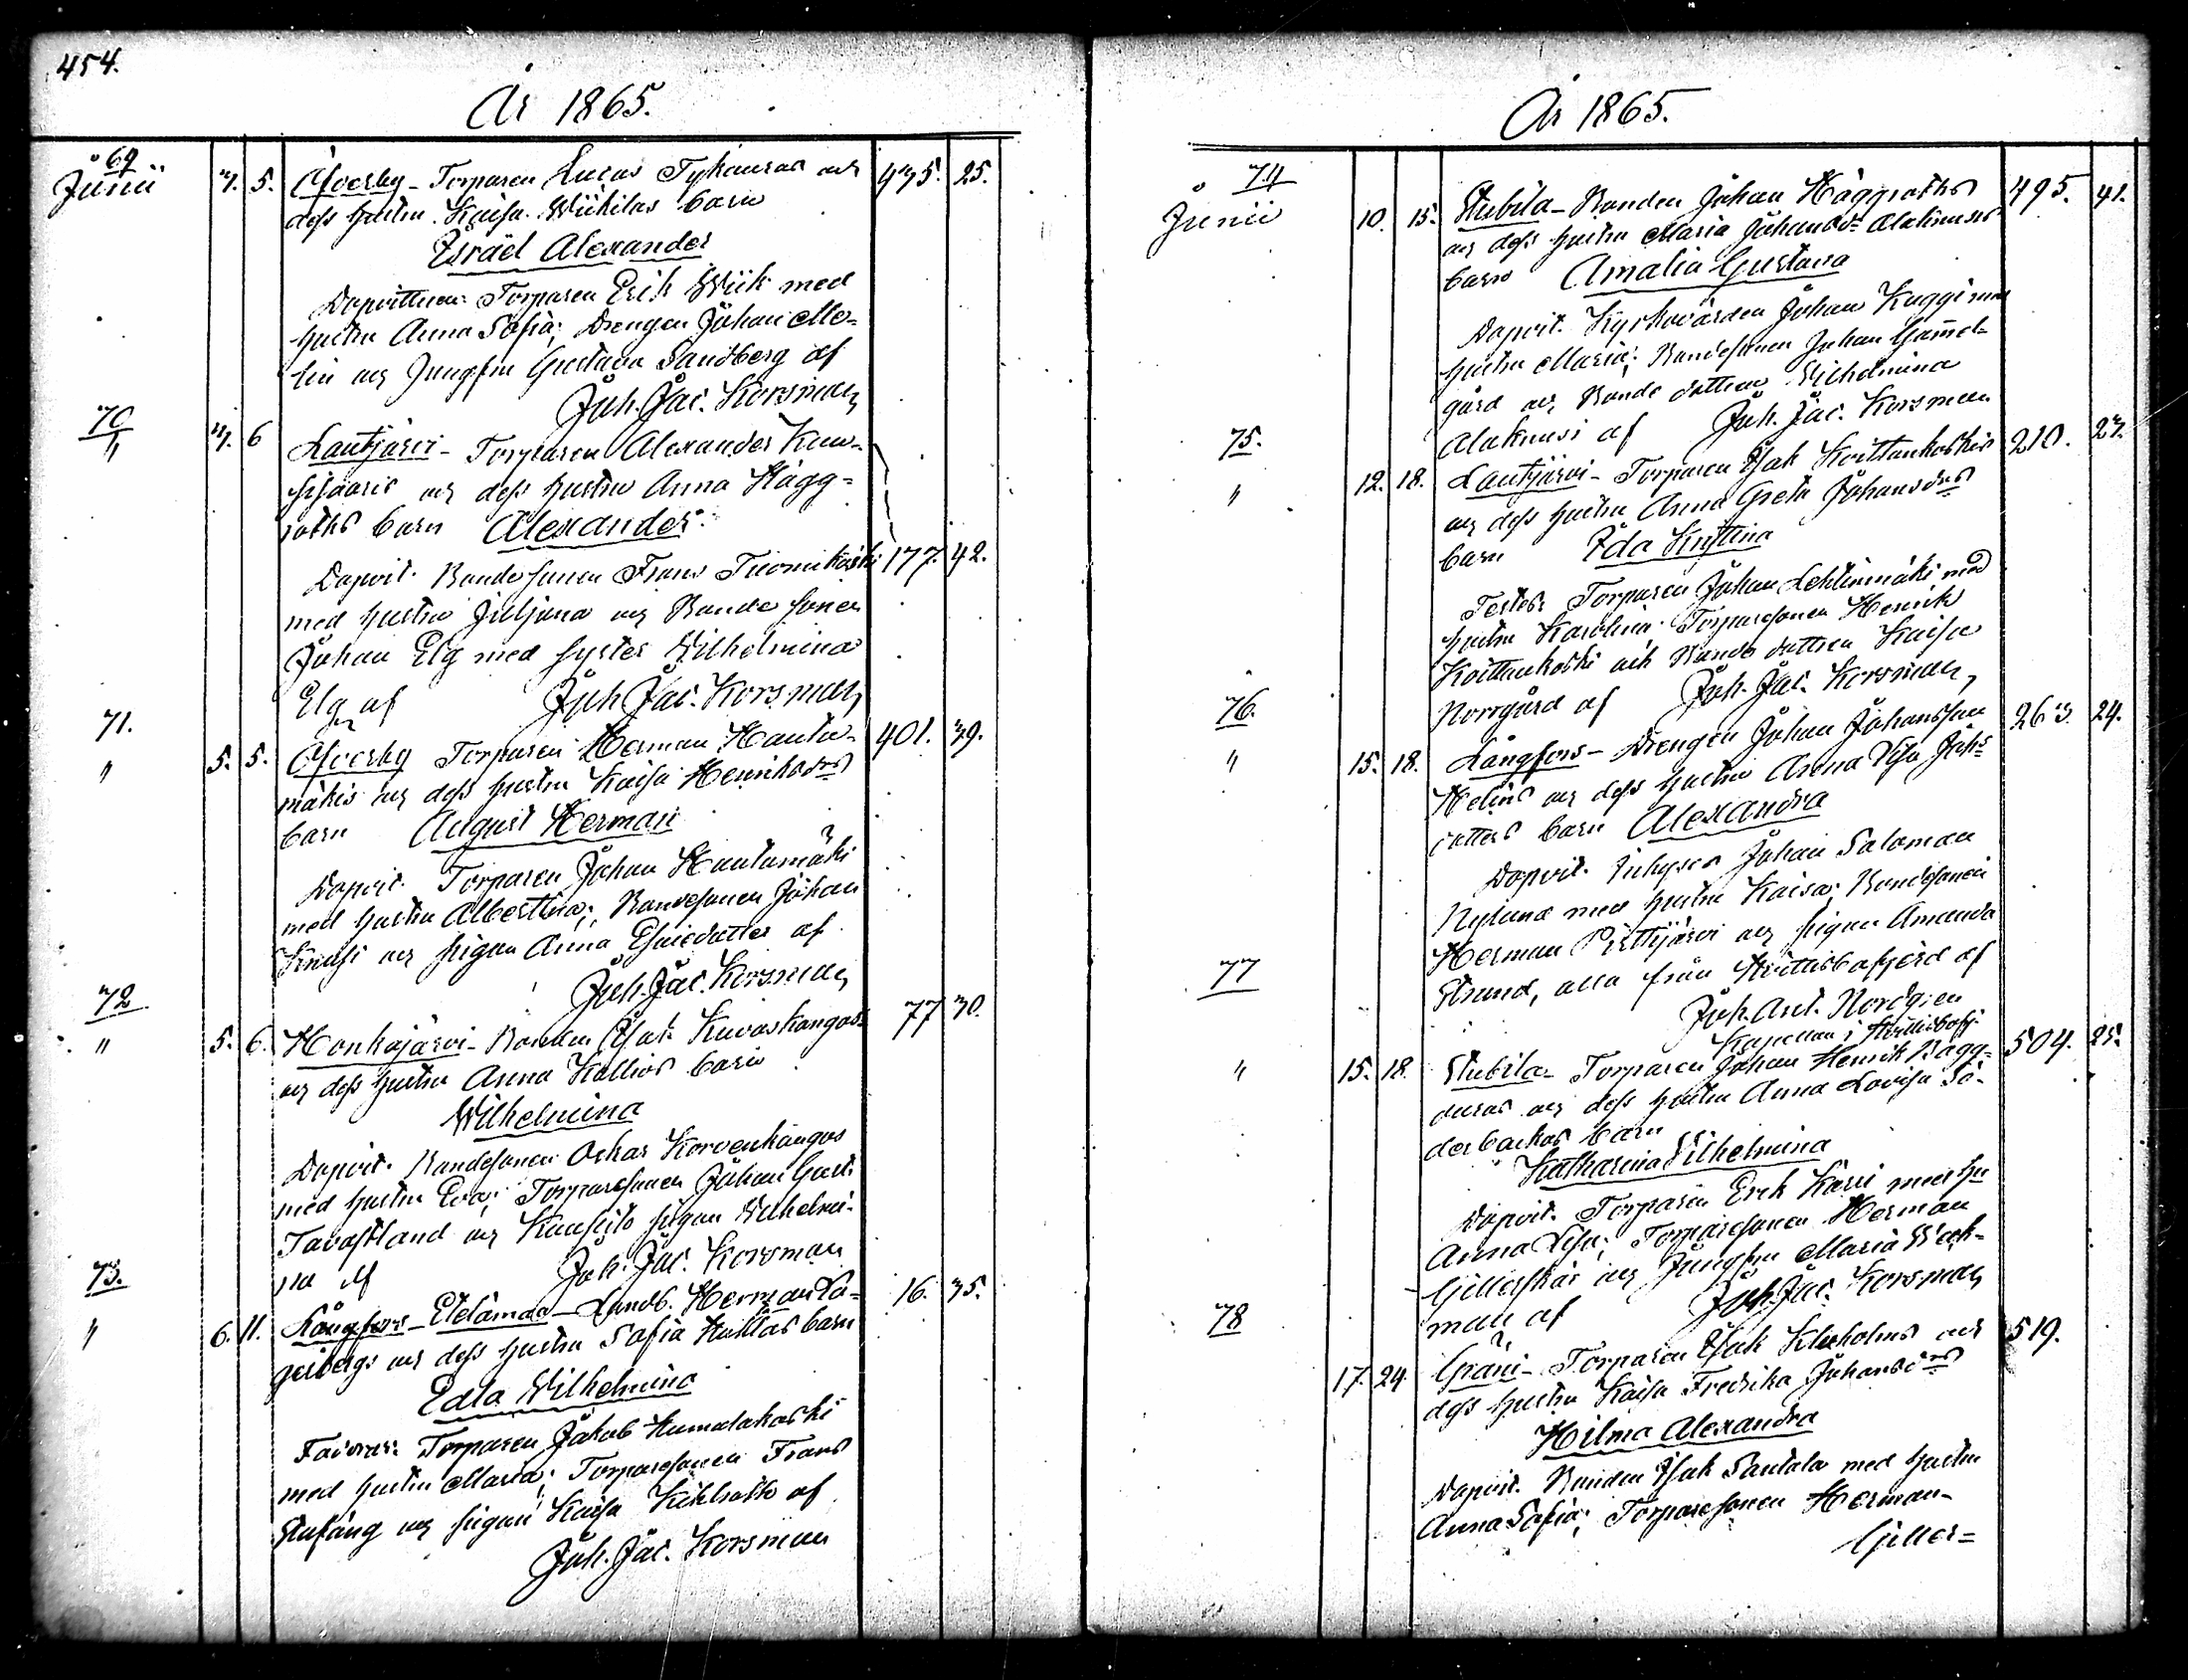 454.
År 1865.
69
Junii 7. 5. Åfverby - Torparen Lucas Tyhauras och 475. 25.
dess hustru Kaisa Wiikilas barn
Israël Alexander
Dopvittnen: Torparen Erik Wiik med
hustru Anna Sofia; Drengen Johan Mo-
lin och Jungfru Gustava Sandberg af
Joh. Jac. Korsman
70
" 7. 6 Lautjärvi - Torparen Alexander
och dess hustru Anna Hägg-
roths barn Alexander
Dopvit. Bondesonen Frans Tuomikoski 177. 42.
med hustru Juliana och Bondesonen
Johan Elg med syster Wilhelmina
Elg af Joh. Jac. Korsman
71.
" 5. 5. Åfverby Torparen Herman Hauta- 401. 39.
mäkis och dess hustru Kaisa Henriksdrs
barn August Herman
Dopvit. Torparen Johan Hautamäki
med hustru Albertina; Bondesonen Johan
Knusi och pigan Anna Esaiedotter af
Joh. Jac. Korsman
72
" 5. 6. Honkajärvi - Bonden Isak Kuvaskangas 77 30.
och dess hustru Anna Kallios barn
Wilhelmina
Dopvit. Bondesonen Oskar Korvenkangas
med hustru Eva; Torparesonen Johan Gust.
Tavastland och pigan Wilhelmi-
na af Joh. Jac. Korsman
73.
" 6. 11. Långfors - Etelämaa - Landb. Herman La- 16. 35.
gerbergs och dess hustru Sofia barn
Edla Wilhelmina
Faddrar: Torparen Jakob Humalakoski
med hustru Maria; Torparesonen Frans
Stufäng och pigan Kaisa af
Joh. Jac. Korsman
År 1865.
74
Junii 10. 15. Stubila - Bonden Johan Häggroths 495. 41.
och dess hustru Maria Johansdr Alaknusis
barn Amalia Gustava
Dopvit. Kyrkovärden Johan Kuggi med
hustru Maria; Bondesonen Johan Gammel-
gård och Bonde dottren Wilhelmina
Alaknusi af Joh. Jac. Korsman
75.
" 12. 18. Lautjärvi - Torparen Isak Koittankoskis 210. 27.
och dess hustru Anna Greta Johansdrs
barn Ida Kristina
Testes: Torparen Johan Lehtinmäki med
hustru Karolina; Torparesonen Henrik
Koittankoski och Bonde dottren Kaisa
Norrgård af Joh. Jac. Korsman
76.
" 15. 18. Långfors - Drengen Johan Johansson 263. 24.
Helins och dess hustru Anna Lisa Johs
dotters barn Alexandra
Dopvit. Inhyses Johan Saloman
Nylund med hustru Kaisa; Bondesonen
Herman Perttijärvi och pigan Amanda
Strand, alla från af
Joh. Ant. Nordgren
Kapellan i
77
" 15. 18. Stubila - Torparen Johan Henrik Bagg- 504. 25.
och dess hustru Anna Lovisa Sö-
derbackas barn
Katharina Wilhelmina
Dopvit. Torparen Erik Karri med hu
Anna Lisa; Torparesonen Herman
Gillerskär och Jungfru Maria Wack-
man af Joh. Jac. Korsman
78
17. 24. Gräni - Torparen Isak Klucholms och 519.
dess hustru Kaisa Fredrika Johansdrs
Hilma Alexandra
Dopvit. Bonden Isak Santala med hustru
Anna Sofia; Torparesonen Herman
Giller=